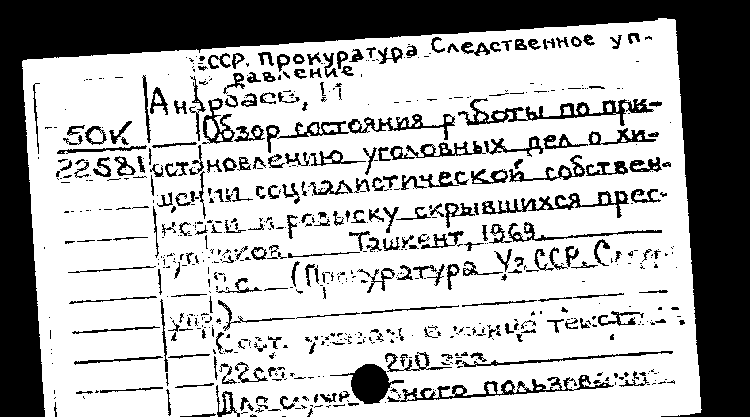 ССР. Прокуратура Следственное уп-
равление
Анарбаев, И
50К Обзор состояния работы по при-
22581 остановлению уголовных дел о хи-
щении социалистической собствен-
ности и розыску скрывшихся прес-
тупников. Ташкент, 1969.
2с. (Прокуратура Уз ССР. След.
упр.).
Сост. указан в конце текста.
22см. 200 экз.
Для служебного пользовани